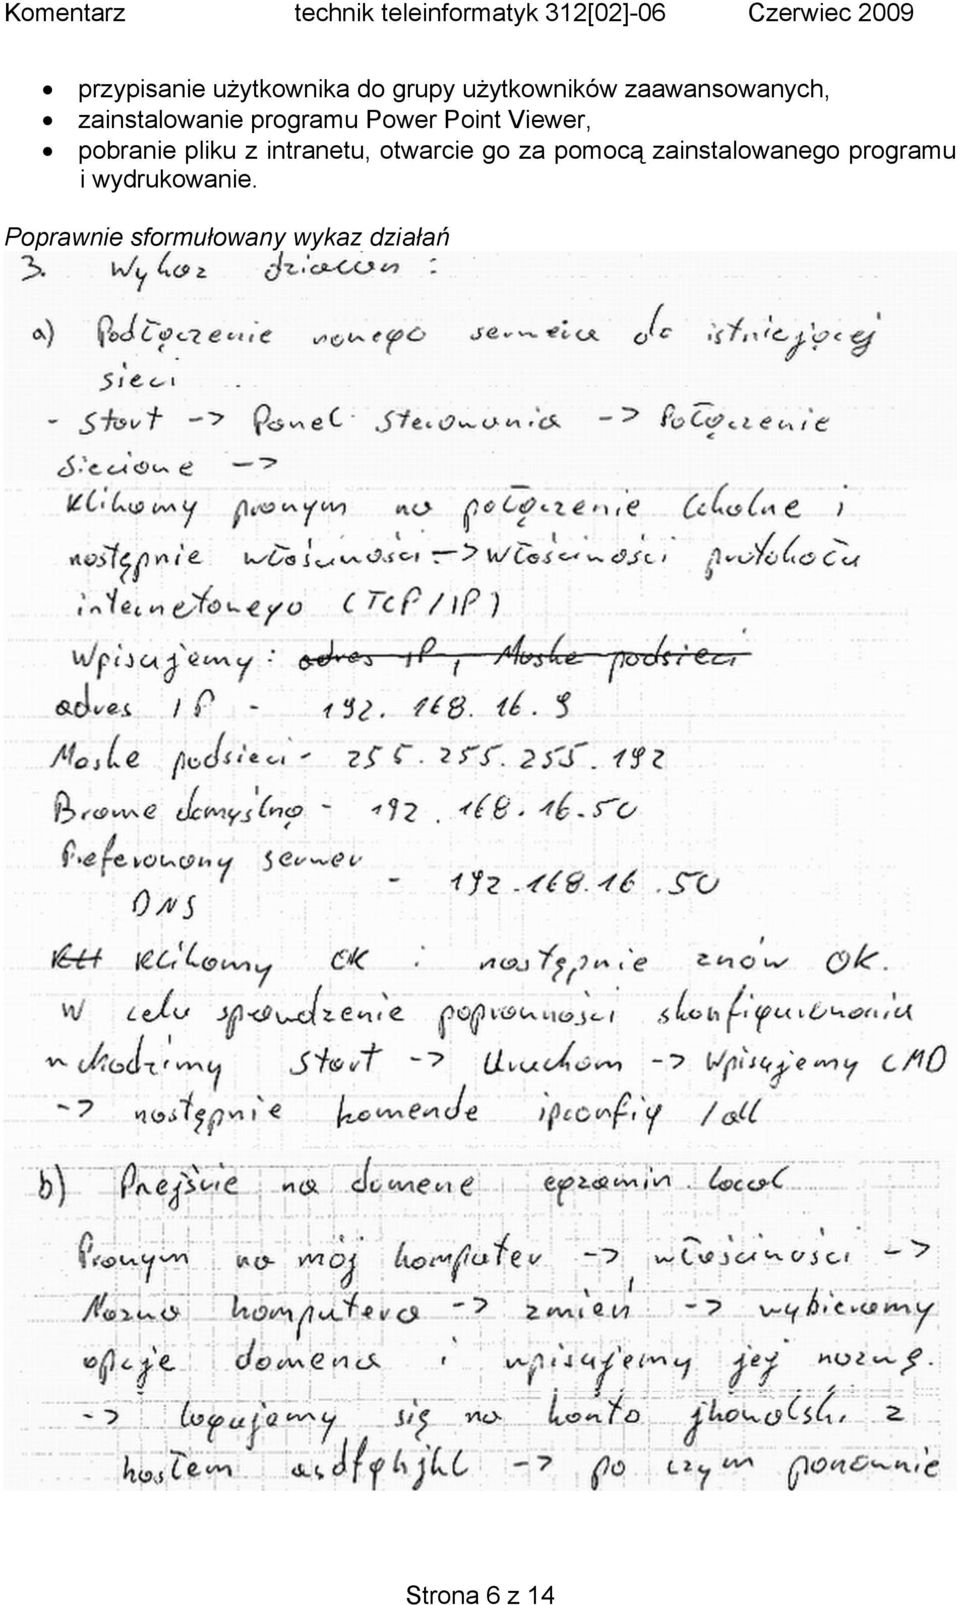 Komentarz technik teleinformatyk 312[02]-06 Czerwiec 2009
• przypisanie użytkownika do grupy użytkowników zaawansowanych,
• zainstalowanie programu Power Point Viewer,
• pobranie pliku z intranetu, otwarcie go za pomocą zainstalowanego programu
i wydrukowanie.
Poprawnie sformułowany wykaz działań
3. Wykaz działań :
a) Podłączenie nowego serwera do istniejącej
sieci
- Start -> Panel Sterowania -> Połączenie
Sieciowe ->
Klikamy prawym na połączenie lokalne i
następnie właściwości -> właściwości protokołu
internetowego (TCP/IP)
Wpisujemy : adres IP, Maske podsieci
adres IP - 192.168.16.9
Maske podsieci - 255.255.255.192
Brame domyślną - 192.168.16.50
Preferowany serwer
- 192.168.16.50
DNS
klikamy OK i następnie znów OK.
W celu sprawdzenie poprawności skonfigurowania
wchodzimy Start -> Uruchom -> Wpisujemy CMD
-> następnie komende ipconfig /all
b) Przejście na domene egzamin.local
Prawym na mój komputer -> właściwości ->
Nazwa komputera -> zmień -> wybieramy
opcje domena i wpisujemy jej nazwę.
-> logujemy się na konto jkowalski z
hasłem asdfghjkl -> po czym ponownie
Strona 6 z 14